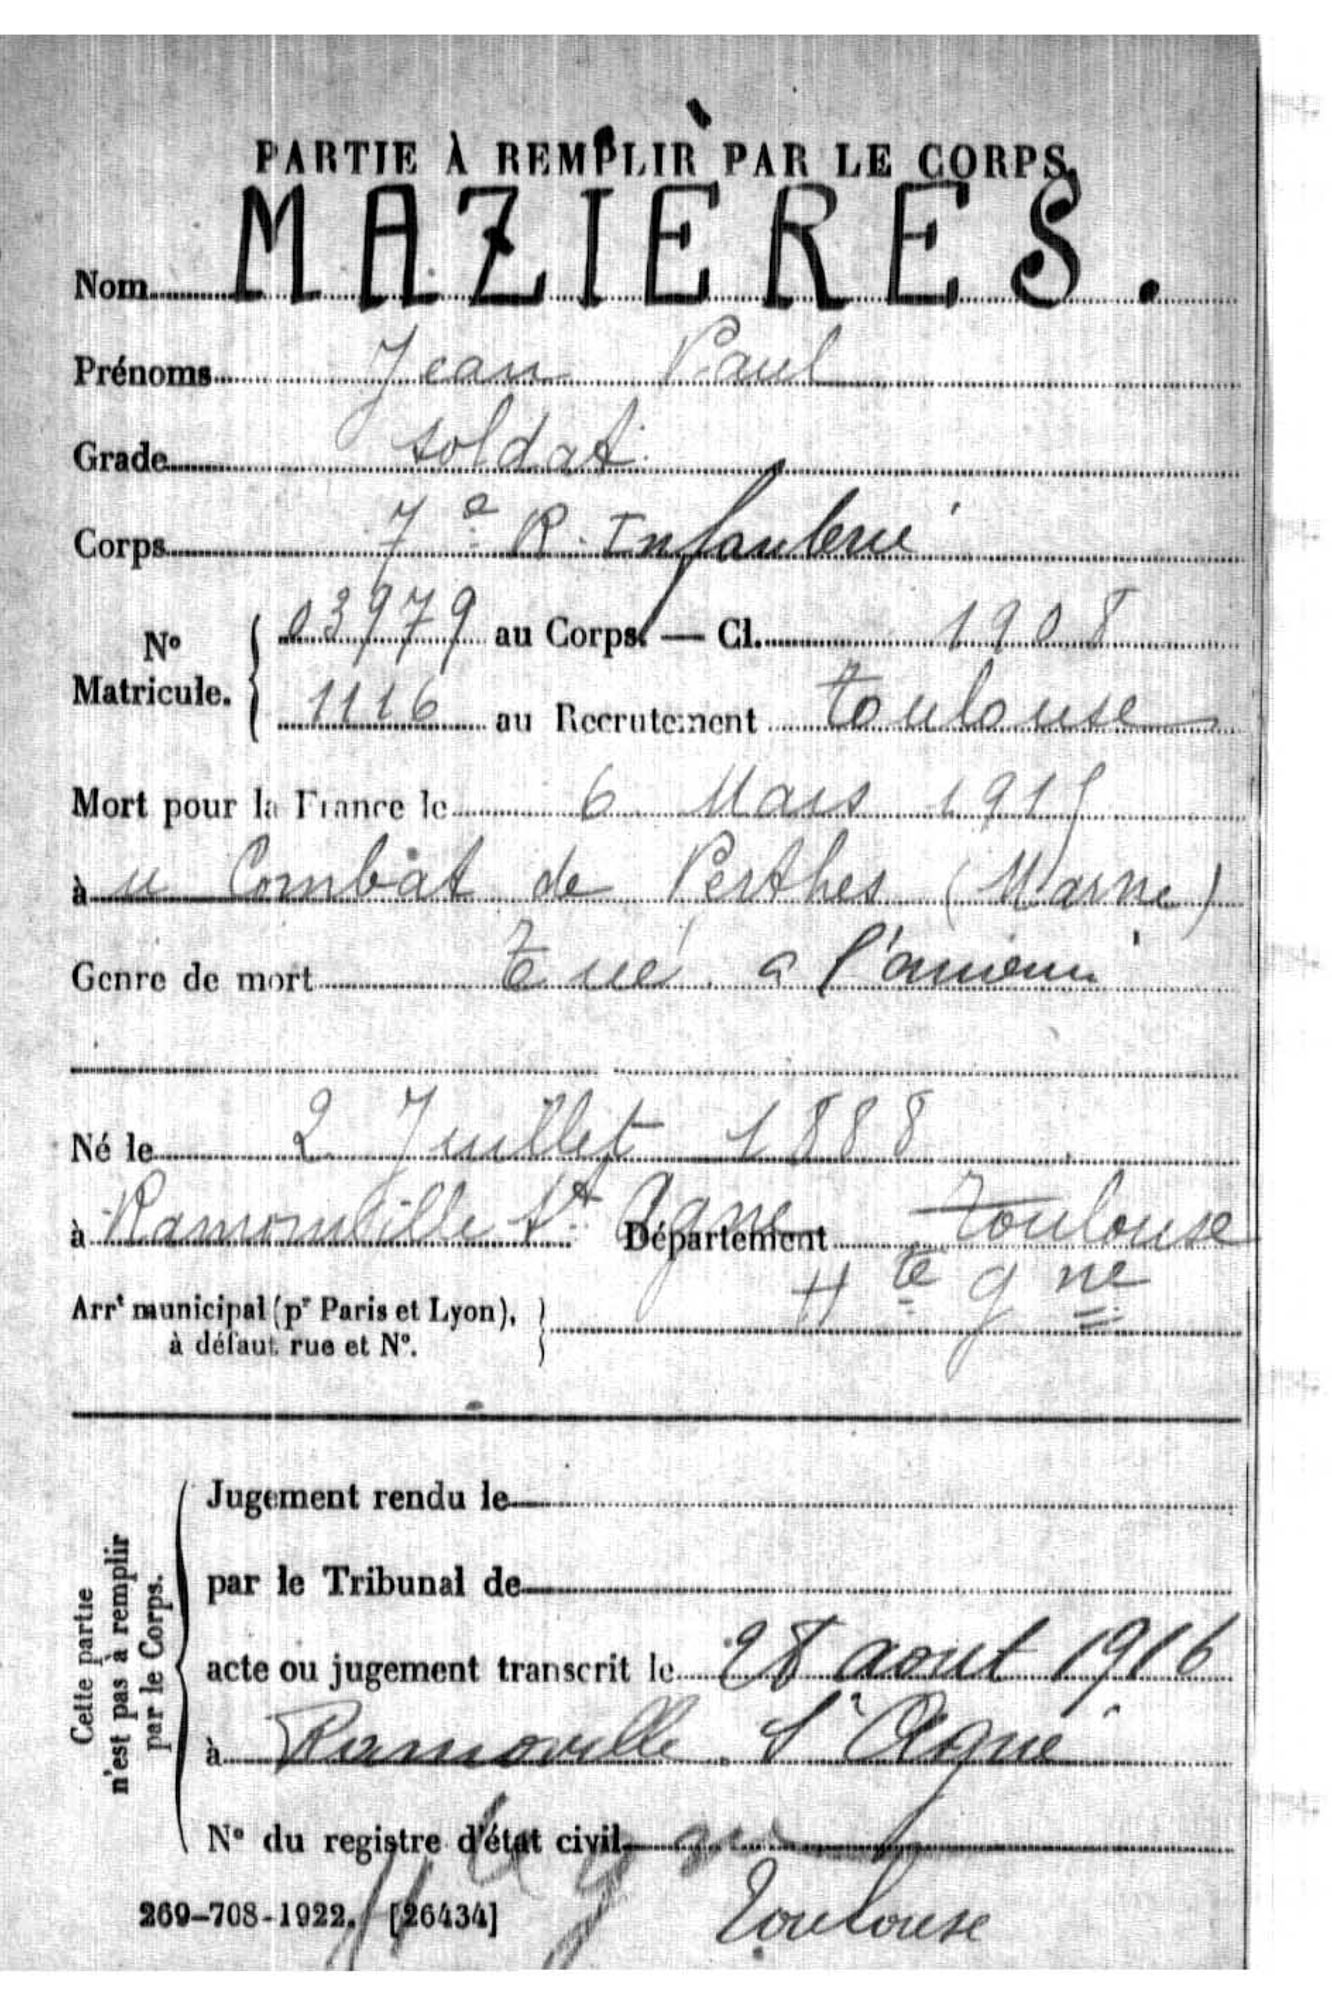 PARTIE À REMPLIR PAR LE CORPS.
Nom MAZIÈRES.
Prénoms Jean Paul
Grade soldat
Corps 7e R. Infanterie
N° Matricule. { 03979 au Corps. — Cl. 1908
1116 au Recrutement Toulouse
Mort pour la France le 6 Mars 1915
à u Combat de Perthes (Marne)
Genre de mort Tué a l'ennemi
Né le 2 Juillet 1888
à Ramonville St Agne Département Toulouse
Hte Gne
Arrt municipal (pr Paris et Lyon), à défaut rue et N°.
Cette partie n'est pas à remplir par le Corps.
Jugement rendu le
par le Tribunal de
acte ou jugement transcrit le 28 aout 1916
à Ramoville St Agne
N° du registre d'état civil
Hte Gne
269-708-1922. [26434] Toulouse